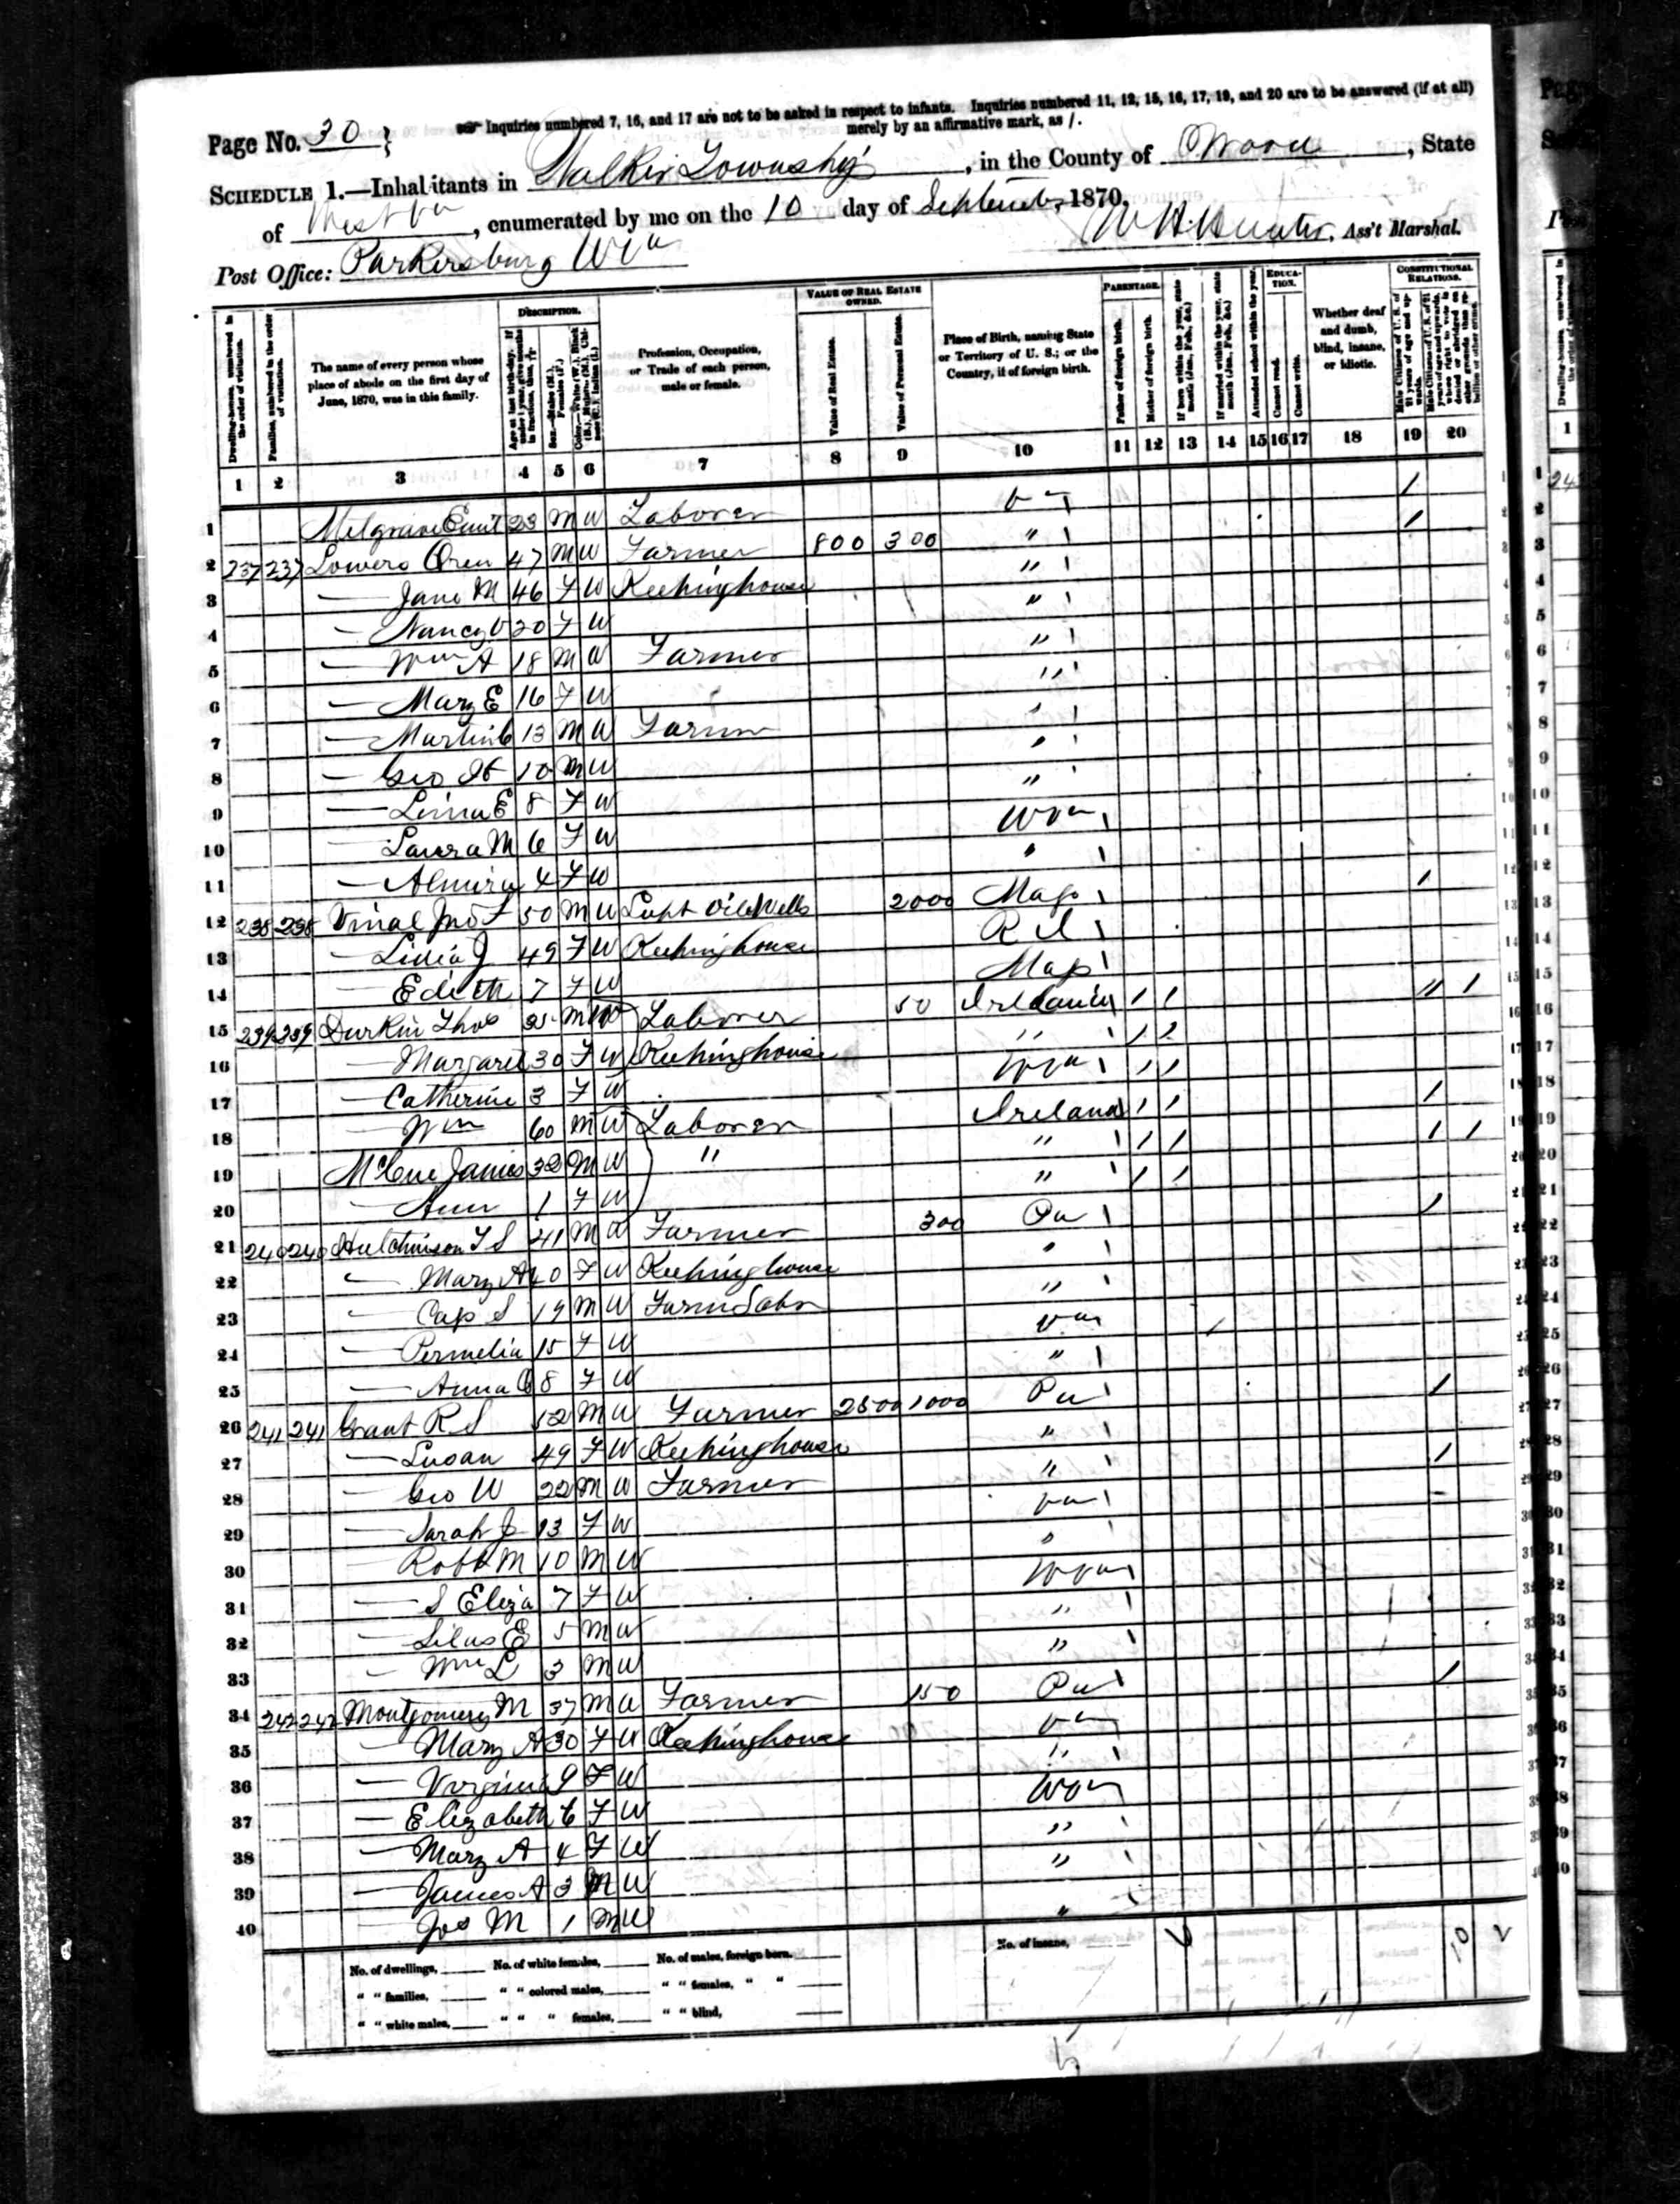 Page No. 30
Inquiries numbered 7, 16, and 17 are not to be asked in respect to infants. Inquiries numbered 11, 12, 15, 16, 17, 19, and 20 are to be answered (if at all)
merely by an affirmative mark, as /.
SCHEDULE 1.—Inhabitants in Walker Township, in the County of Wood, State
of West Va, enumerated by me on the 10 day of September, 1870.
Post Office: Parkersburg WVa W H Hunter, Ass't Marshal.
DESCRIPTION. VALUE OF REAL ESTATE OWNED. PARENTAGE. EDUCATION. CONSTITUTIONAL RELATIONS.
Dwelling-houses, numbered in the order of visitation.
Families, numbered in the order of visitation.
The name of every person whose place of abode on the first day of June, 1870, was in this family.
Age at last birth-day. If under 1 year, give months in fractions, thus, 
Sex.—Males (M.), Females (F.)
Color.—White (W.), Black (B.), Mulatto (M.), Chinese (C.), Indian (I.)
Profession, Occupation, or Trade of each person, male or female.
Value of Real Estate.
Value of Personal Estate.
Place of Birth, naming State or Territory of U. S.; or the Country, if of foreign birth.
Father of foreign birth.
Mother of foreign birth.
If born within the year, state month (Jan., Feb., &c.)
If married within the year, state month (Jan., Feb., &c.)
Attended school within the year.
Cannot read.
Cannot write.
Whether deaf and dumb, blind, insane, or idiotic.
Male Citizens of U. S. of 21 years of age and upwards.
1 2 3 4 5 6 7 8 9 10 11 12 13 14 15 16 17 18 19 20
1 23 M W Laborer Va /
2 237 237 Lowers Oren 47 M W Farmer 800 300 " /
3 — Jane M 46 F W Keepinghouse "
4 — Nancy V 20 F W "
5 — Wm A 18 M W Farmer "
6 — Mary E 16 F W "
7 — Martin 13 M W Farmer "
8 — Geo 10 M W "
9 — E 8 F W "
10 — Laura M 6 F W WVa
11 — Almira 4 F W "
12 238 238 Vinal Jno F 50 M W Supt Oil Wells 2000 Mass /
13 — J 49 F W Keepinghouse R I
14 — Edith 7 F W Mass
15 239 239 Durkin Thos 35 M W Laborer 50 Ireland / / / /
16 — Margaret 30 F W Keepinghouse " /
17 — Catherine 3 F W WVa / /
18 — Wm 60 M W Laborer Ireland / / /
19 McCue James 32 M W " " / / / /
20 — Ann 1 F W " / /
21 240 240 Hutchinson T S 41 M W Farmer 300 Pa /
22 — Mary A 40 F W Keepinghouse "
23 — Cap S 19 M W Farm Labr "
24 — Permelia 15 F W Va
25 — Anna 8 F W "
26 241 241 Grant R S 52 M W Farmer 2500 1000 Pa /
27 — Susan 49 F W Keepinghouse "
28 — Geo W 22 M W Farmer " /
29 — Sarah J 13 F W Va
30 Robt M 10 M W "
31 — S Eliza 7 F W WVa
32 — Silas E 5 M W "
33 — Wm L 3 M W "
34 242 242 Montgomery M 37 M W Farmer 150 Pa /
35 — Mary A 30 F W Keepinghouse Va
36 — Virginia 9 F W "
37 — Elizabeth 6 F W WVa
38 — Mary A 4 F W "
39 — James A 3 M W "
40 — Jos M 1 M W "
No. of dwellings, No. of white females, No. of males, foreign born. No. of insane, 10 2
" " families, " " colored males, " " females, " "
" " white males, " " " females, " " blind,